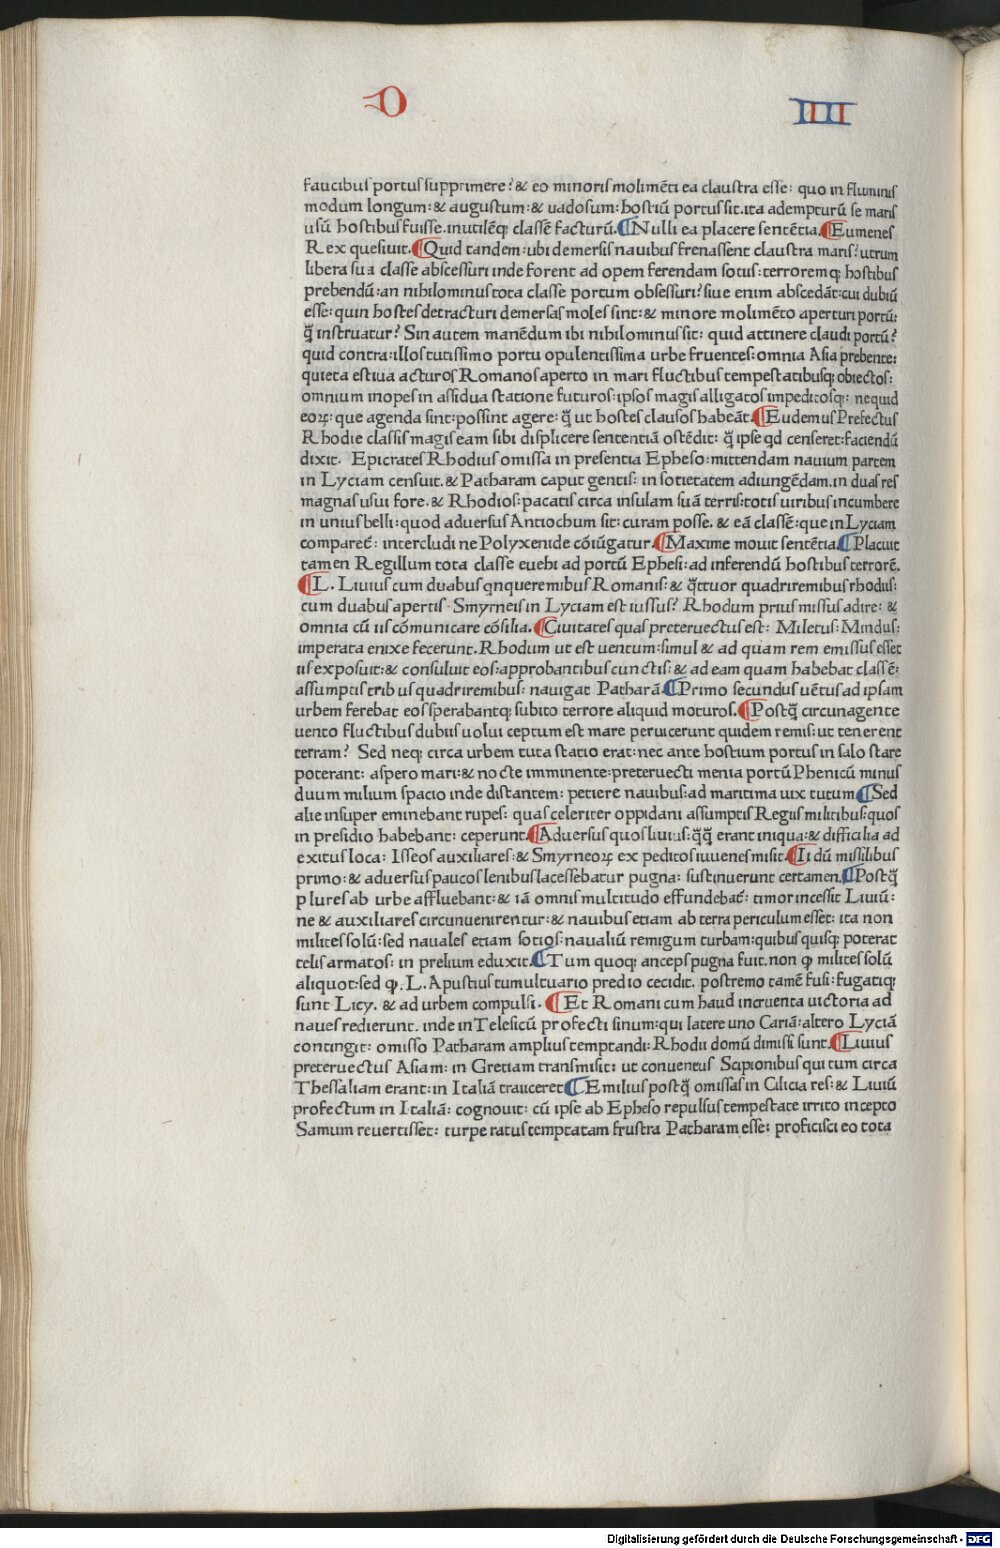 D IIII
faucibus portus supprimere? & eo minoris molimẽti ea claustra esse: quo in fluminis
modum longum: & augustum: & uadosum: hostiũ portus sit. ita adempturũ se maris
usũ hostibus fuisse. inutilẽq; classẽ facturũ. ¶Nulli ea placere sentẽtia. ¶Eumenes
Rex quesiuit. ¶Quid tandem: ubi demersis nauibus frenassent claustra maris? utrum
libera sua classe abscessuri inde forent ad opem ferendam sotiis: terroremq; hostibus
prebendũ: an nihilominus tota classe portum obsessuri? siue enim abscedãt: cui dubiũ
esse: quin hostes detracturi demersas moles sint: & minore molimẽto aperturi portũ:
q̃ instruatur? Sin autem manẽdum ibi nihilominus sit: quid attinere claudi portũ?
quid contra: illos tutissimo portu opulentissima urbe fruentes: omnia Asia prebente:
quieta estiua acturos Romanos aperto in mari fluctibus tempestatibusq; obiectos:
omnium inopes in assidua statione futuros: ipsos magis alligatos impeditosq;: nequid
eoꝝ: que agenda sint: possint agere: q̃ ut hostes clausos habeãt. ¶Eudemus Prefectus
Rhodie classis magis eam sibi displicere sententiã ostẽdit: q̃ ipse qd censeret: faciendũ
dixit. Epicrates Rhodius omissa in presentia Epheso: mittendam nauium partem
in Lyciam censuit. & Patharam caput gentis: in sotietatem adiungẽdam. in duas res
magnas usui fore. & Rhodios: pacatis circa insulam suã terris: totis uiribus incumbere
in unius belli: quod aduersus Antiochum sit: curam posse. & eã classẽ: que in Lyciam
compareť: intercludi ne Polyxenide cõiũgatur. ¶Maxime mouit sentẽtia. ¶Placuit
tamen Regillum tota classe euehi ad portũ Ephesi: ad inferendũ hostibus terrorẽ.
¶L. Liuius cum duabus qnqueremibus Romanis: & q̃ttuor quadriremibus rhodiis:
cum duabus apertis Smyrneis in Lyciam est iussus? Rhodum prius missus adire: &
omnia cũ iis cõmunicare cõsilia. ¶Ciuitates quas preteruectus est: Miletus: Mindus:
imperata enixe fecerunt. Rhodum ut est uentum: simul & ad quam rem emissus esset
iis exposuit: & consuluit eos: approbantibus cunctis: & ad eam quam habebat classẽ:
assumptis tribus quadriremibus: nauigat Patharã. ¶Primo secundus uẽtus ad ipsam
urbem ferebat eos sperabantq; subito terrore aliquid moturos. ¶Postq̃ circunagente
uento fluctibus dubiis uolui ceptum est mare peruicerunt quidem remis: ut tenerent
terram? Sed neq; circa urbem tuta statio erat: nec ante hostium portus in salo stare
poterant: aspero mari: & nocte imminente: preteruecti menia portũ Phenicũ minus
duum milium spacio inde distantem: petiere nauibus: ad maritima uix tutum ¶Sed
alie insuper eminebant rupes: quas celeriter oppidani assumptis Regiis militibus: quos
in presidio habebant: ceperunt. ¶Aduersus quos liuius: q̃q̃ erant iniqua: & difficilia ad
exitus loca: Isseos auxiliares: & Smyrneoꝝ expeditos iuuenes misit. ¶Ii dũ missilibus
primo: & aduersus paucos lenibus lacessebatur pugna: sustinuerunt certamen. ¶Postq̃
plures ab urbe affluebant: & iã omnis multitudo effundebať: timor incessit Liuiũ:
ne & auxiliares circunuenirentur: & nauibus etiam ab terra periculum esset: ita non
milites solũ: sed nauales etiam sotios: naualiũ remigum turbam: quibus quisq; poterat
telis armatos: in prelium eduxit. ¶Tum quoq; anceps pugna fuit. non ꝙ milites solũ
aliquot: sed ꝙ. L. Apustius tumultuario predio cecidit. postremo tamẽ fusi: fugatiq;
sunt Licy. & ad urbem compulsi. ¶Et Romani cum haud incruenta uictoria ad
naues redierunt. inde in Telesicũ profecti sinum: qui latere uno Cariã: altero Lyciã
contingit: omisso Patharam amplius temptandi: Rhodii domũ dimissi sunt. ¶Liuius
preteruectus Asiam: in Gretiam transmisit: ut conuentus Scipionibus qui tum circa
Thessaliam erant: in Italiã traiiceret ¶Emilius postq̃ omissas in Cilicia res: & Liuiũ
profectum in Italiã: cognouit: cũ ipse ab Epheso repulsus tempestate irrito incepto
Samum reuertisset: turpe ratus temptatam frustra Patharam esse: proficisci eo tota
Digitalisierung gefördert durch die Deutsche Forschungsgemeinschaft - DFG